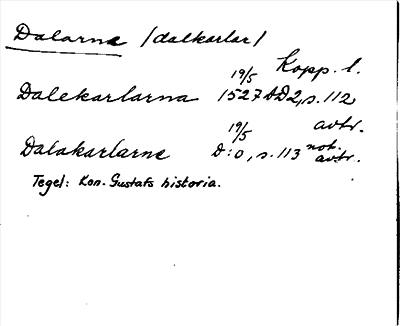 Dalarna /dalkarlar/
Kopp. l.
19/5
Dalekarlarna 1527 AD2, s. 112
avtr.
19/5
Dalakarlarne D:o, s. 113 not. avtr.
Tegel: Kon. Gustafs historia.